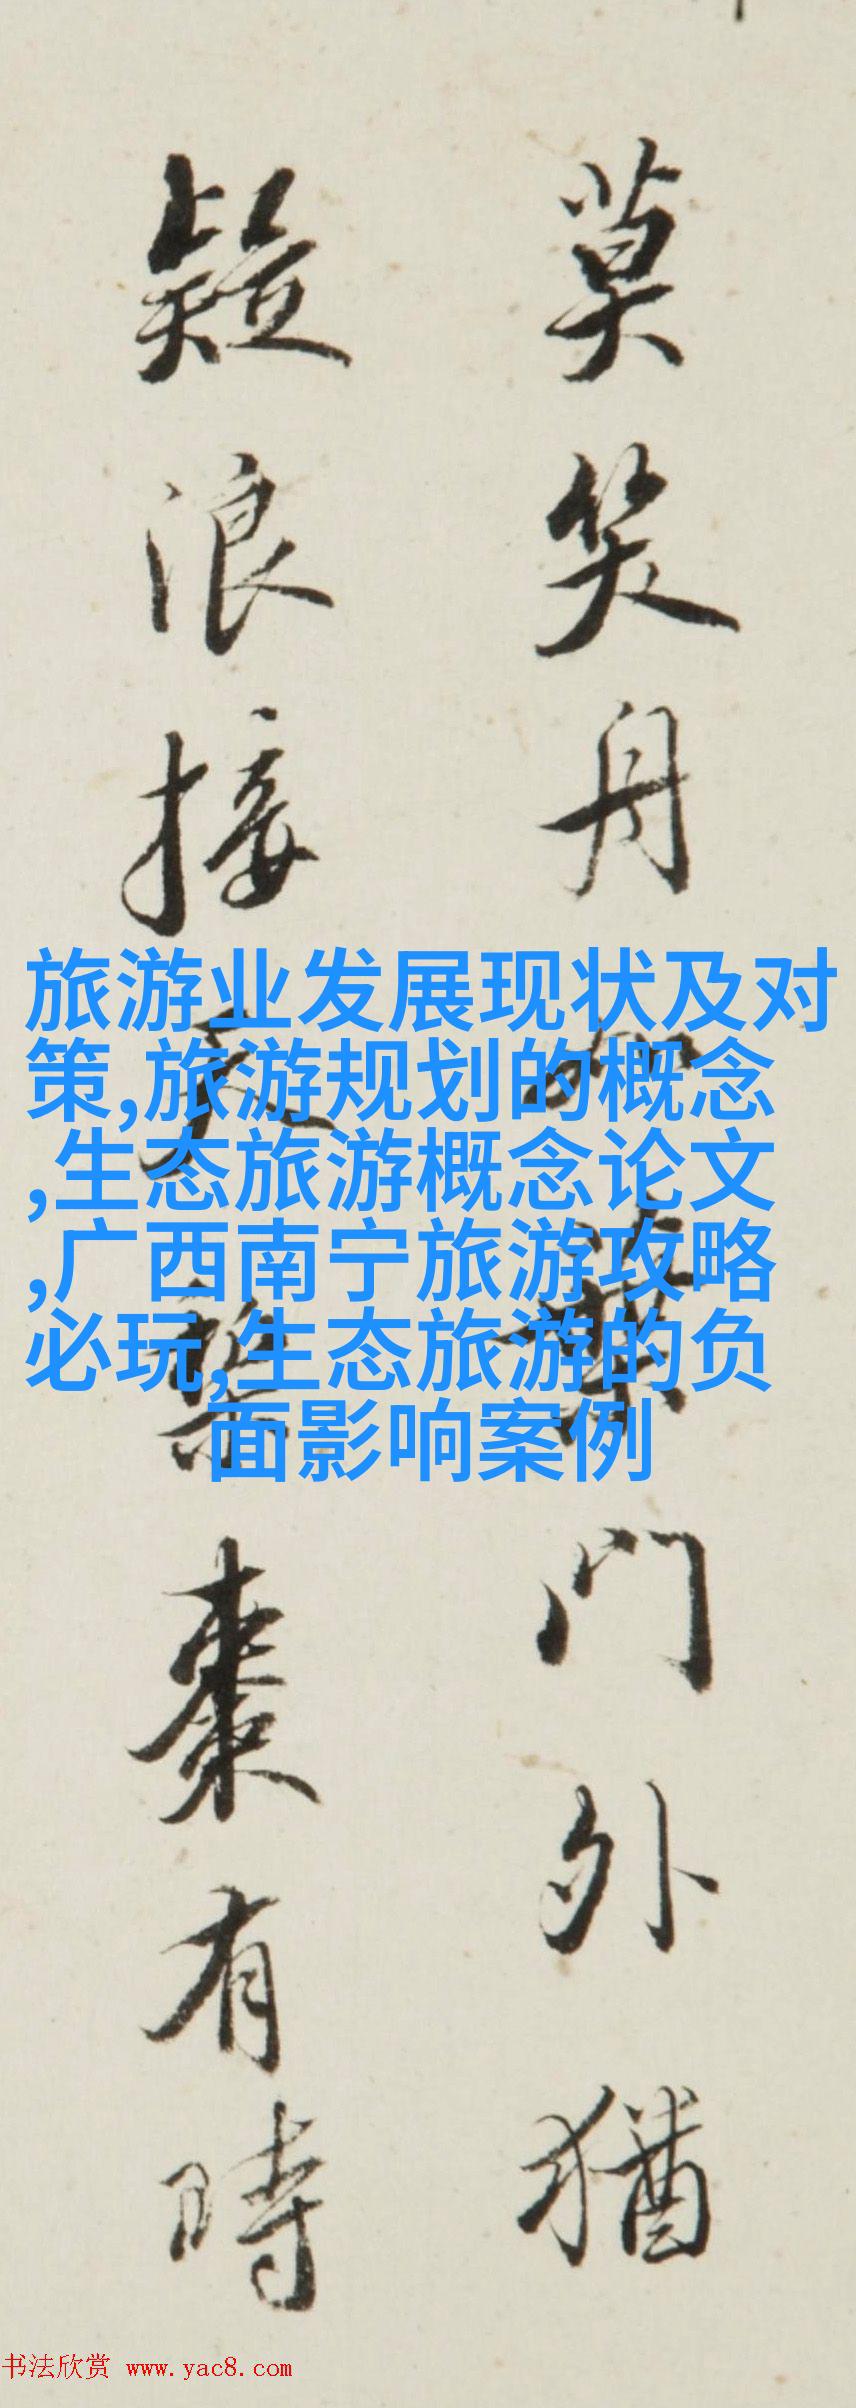 莫笑舟如葉門外猶
疑浪接天梨棗有時
旅游业发展现状及对
策,旅游规划的概念
,生态旅游概念论文
,广西南宁旅游攻略
必玩,生态旅游的负
面影响案例
书法欣赏 www.yac8.com